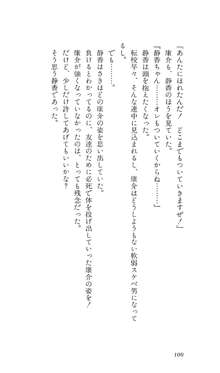 「あんたにほれたんだ！　どこまでもついていきますぜ！」
康介も、静香のほうを見ていた。
「静香ちゃん……オレもついていくからね……」
静香は頭を抱えたくなった。
転校早々、そんな連中に見込まれるし、康介はどうしようもない軟弱スケベ男だ
るし。
でも……。
静香はさきほどの康介の姿を思い出していた。
負けるとわかってるのに、友達のために必死で体を投げ出していった康介の姿を！
一発も当たっていなかったのは、とっても残念だったな。
だけど、少しだけ許してあげてもいいかな？
そう思う静香であった。
100